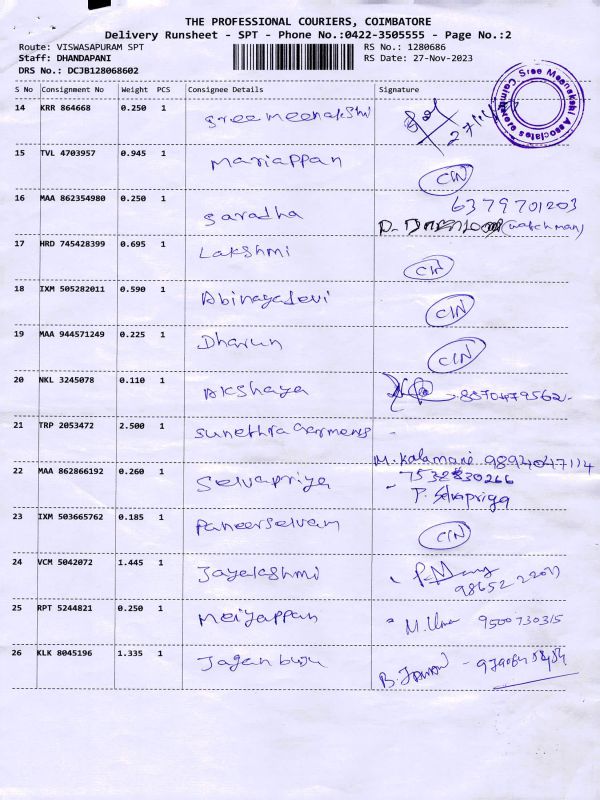 THE PROFESSIONAL COURIERS, COIMBATORE
Delivery Runsheet - SPT - Phone No.:0422-3505555 - Page No.:2
Route: VISWASAPURAM SPT
RS No.: 1280686
Staff: DHANDAPANI
RS Date: 27-Nov-2023
DRS No.: DCJB128068602
S No Consignment No Weight PCS Consignee Details Signature
Sree Meenakshi Associates
14 KRR 864668 0.250 1 Sreemeenakshi
15 TVL 4703957 0.945 1 Mariappan CIN
16 MAA 862354980 0.250 1 Saradha 6379701203
(watchman)
17 HRD 745428399 0.695 1 Lakshmi CIN
18 IXM 505282011 0.590 1 Abinayadevi CIN
19 MAA 944571249 0.225 1 Dharun CIN
20 NKL 3245078 0.110 1 Akshaya
21 TRP 2053472 2.500 1 Sunethra Garments
M. Kalamani 9894047114
22 MAA 862866192 0.260 1 Selvapriya 7538830266
P. Selvapriya
23 IXM 503665762 0.185 1 Paneerselvam CIN
24 VCM 5042072 1.445 1 Jayelakshmi
25 RPT 5244821 0.250 1 Meiyappan M. Uma 9500730315
26 KLK 8045196 1.335 1 Jagan buju